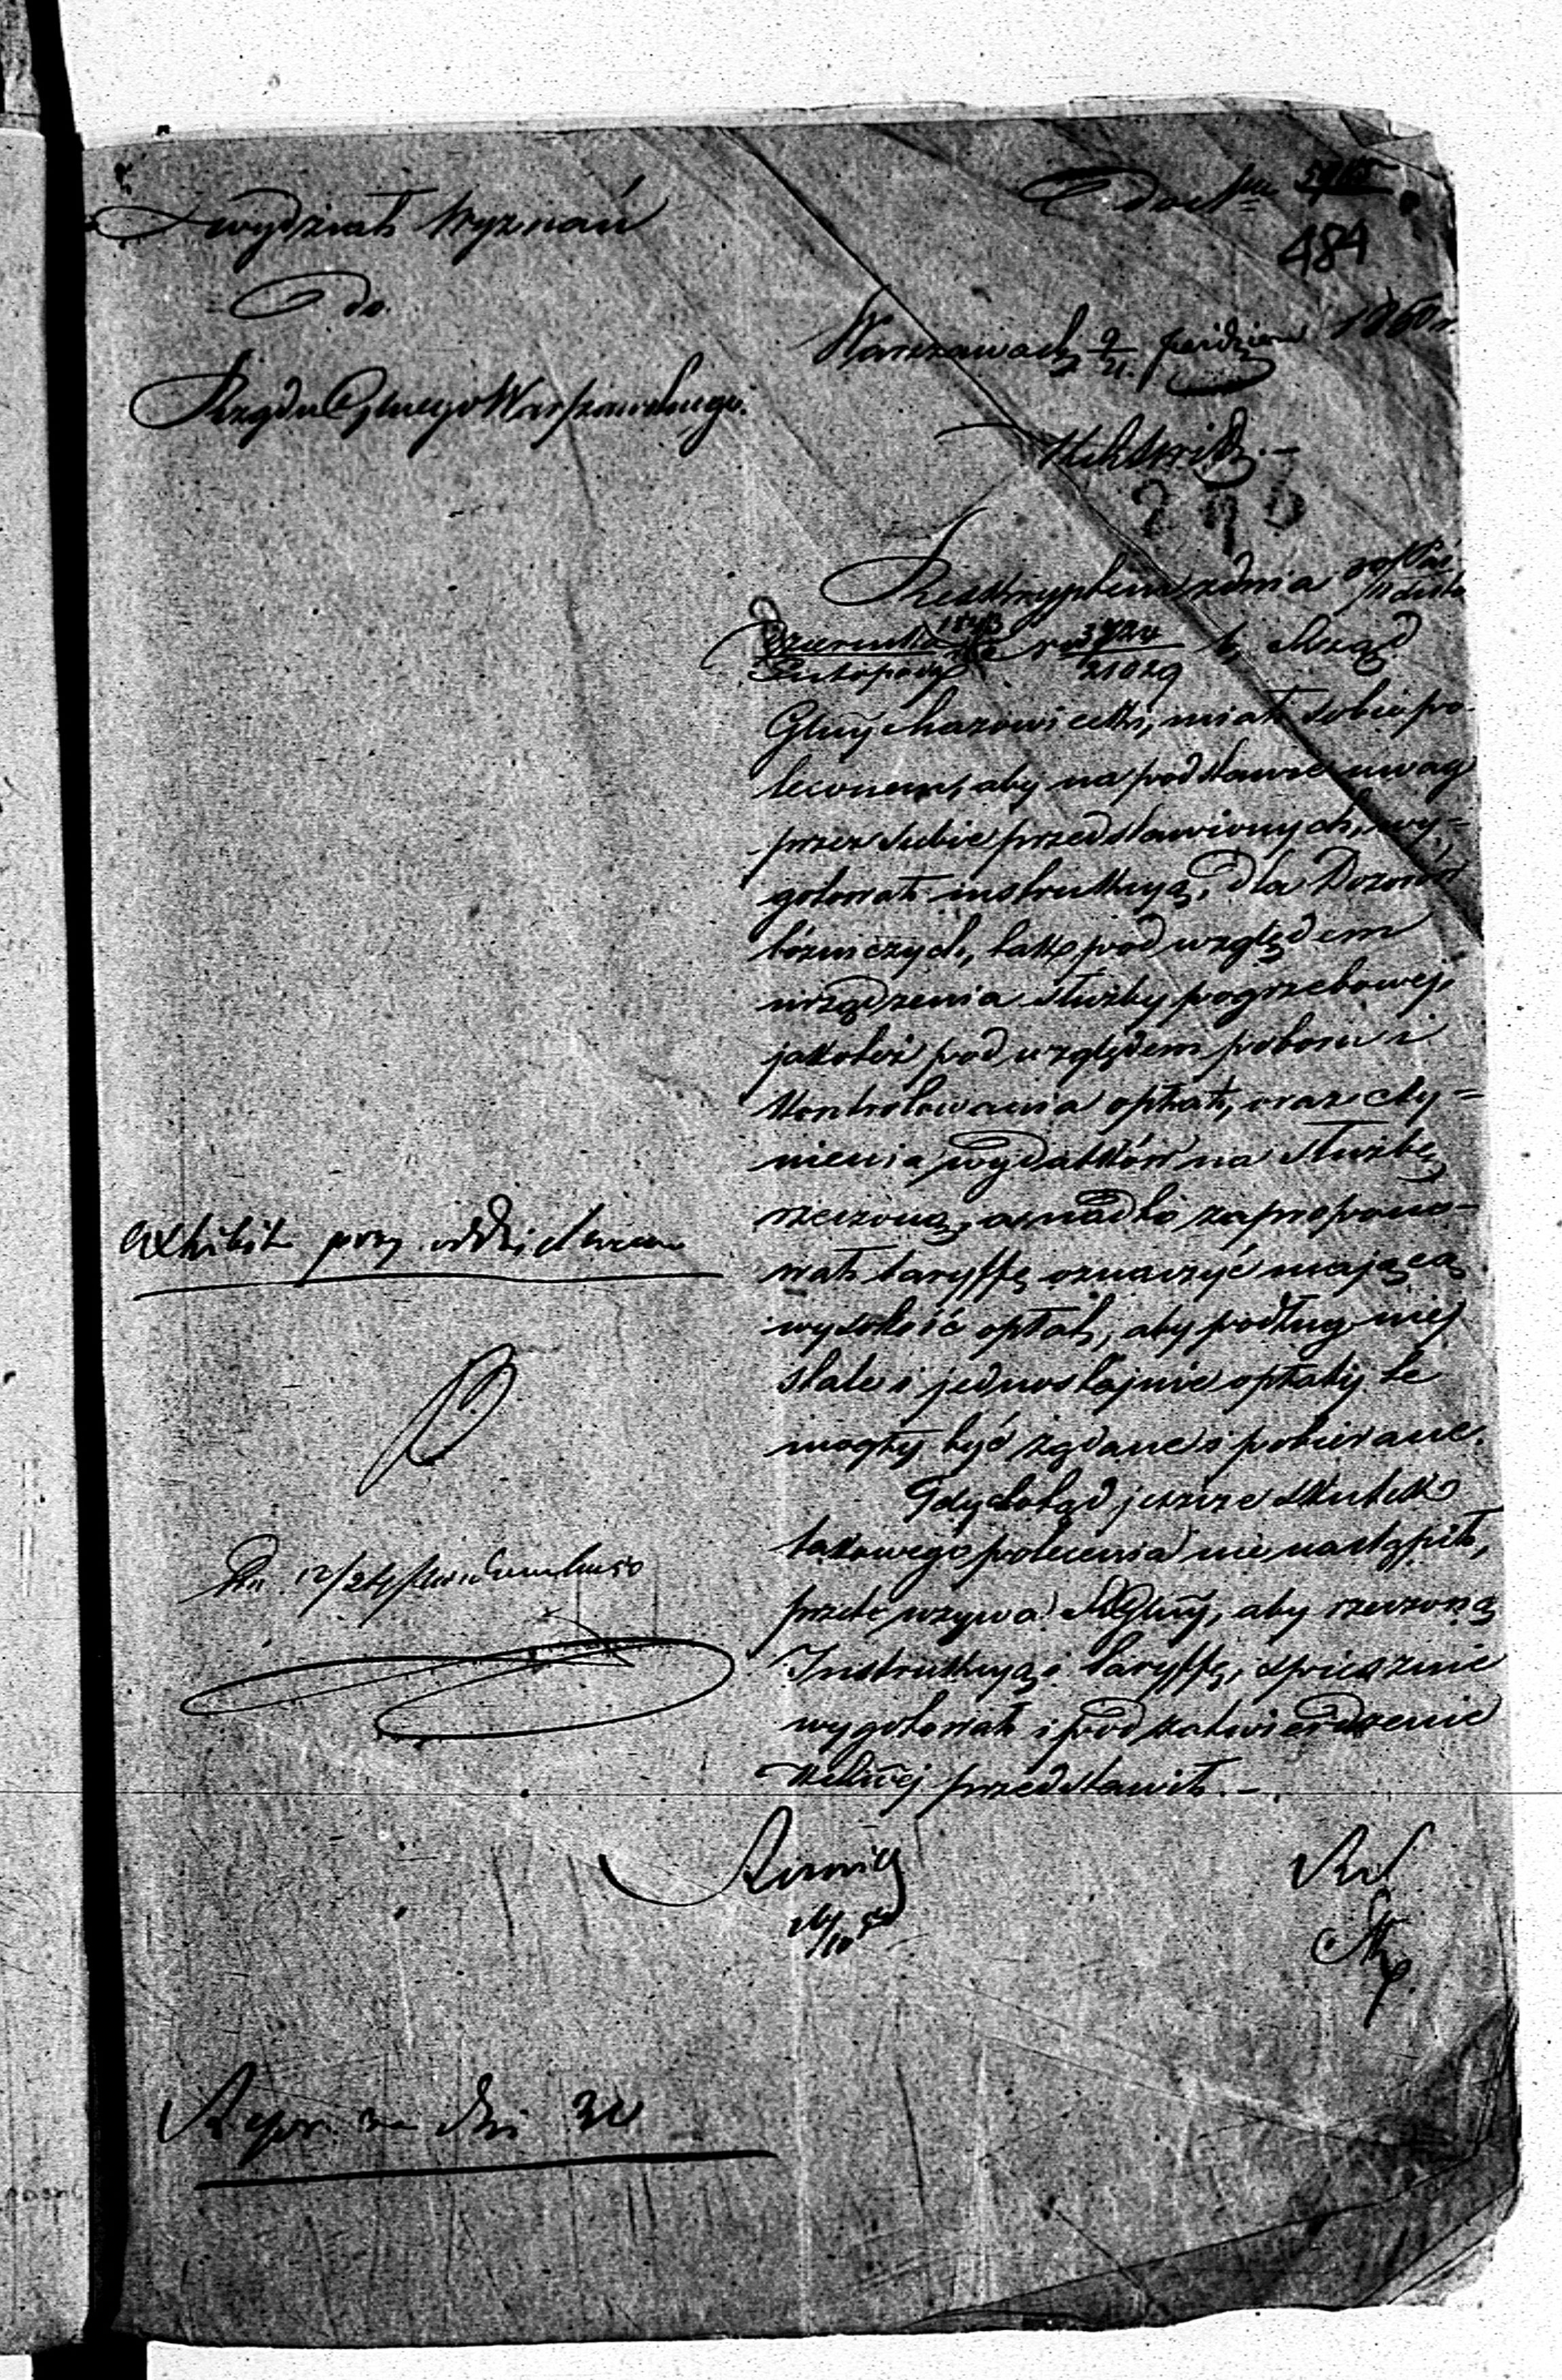 Wydział Wyznań
do
Rządu Głnego Warszawskiego.
do Nru
484
Warszawa d. 9/21 Paźdź. 1850 r.
Reskryptem z dnia
Października 1843
Listopada N 3724/21029 b. Rząd
Glny Mazowiecki, miał sobie po-
leconem, aby na podstawie uwag
przez siebie przedstawionych, wy=
gotował instrukcyą, dla Dozorów
bóżniczych, tak pod względem
urządzenia służby pogrzebowej,
jakoteż pod względem poboru i
kontrolowania opłat, oraz czy=
nienia wydatków na służbę
rzeczoną, a nadto zapropono-
wał taryffę oznaczyć mającą
wysokość opłat, aby podług niej
stale i jednostajnie opłaty te
mogły być żądane i pobierane.
Gdy dotąd jeszcze skutek
takowego polecenia nie nastąpił,
przeto wzywa RGlny, aby rzeczoną
Instrukcyą i taryffę, spiesznie
wygotował i pod zatwierdzenie
przedstawił.—
exhibit przy oddzielnem
Dn. 12/24 Października 50
Repr. za dni 30